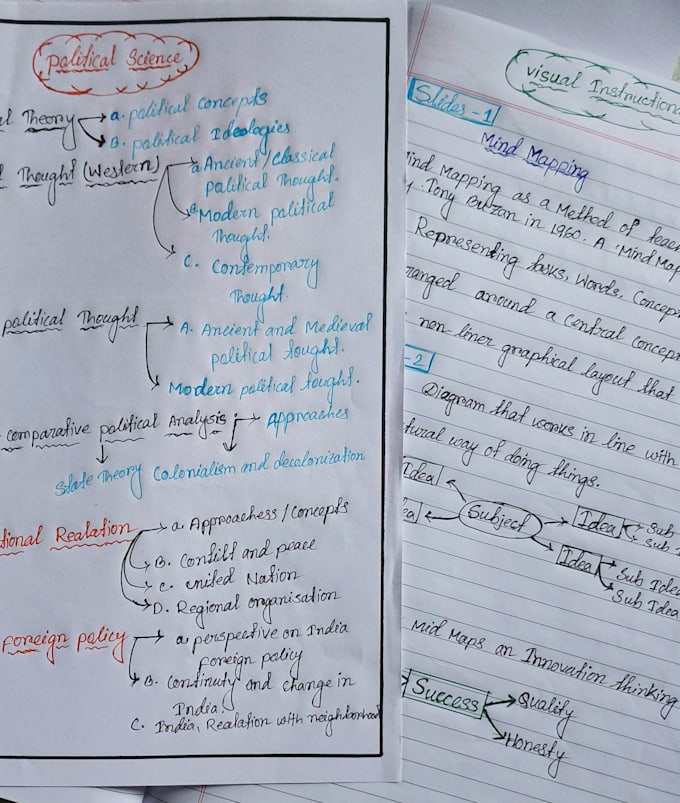 Political Science
Theory a. political concepts
B. political Ideologies
Thought (Western) a Ancient/Classical
political Thought.
B Modern political
Thought.
C. Contemporary
Thought
political Thought A. Ancient and Medieval
political tought.
Modern political tought.
comparative political Analysis approaches
State Theory Colonialism and decolonization
tional Realation a. Approachess/Concepts
B. Confilt and peace
C. United Nation
D. Regional organisation
Foreign policy a. perspective on India
foreign policy
B. Continuty and change in
India.
C. India, Realation with neighborhood
visual Instructiona
Slides-1
Mind Mapping
ind Mapping as a Method of teac
Tony Buzan in 1960. A Mind Map
Representing tasks, Words, Concep
ranged around a central concep
non liner graphical layout that
-2
Diagram that works in line with
tural way of doing things.
Idea
ea Subject Idea Sub
Sub I
Idea Sub Idea
Sub Idea
Mid Maps an Innovation thinking
Success Quality
Honesty